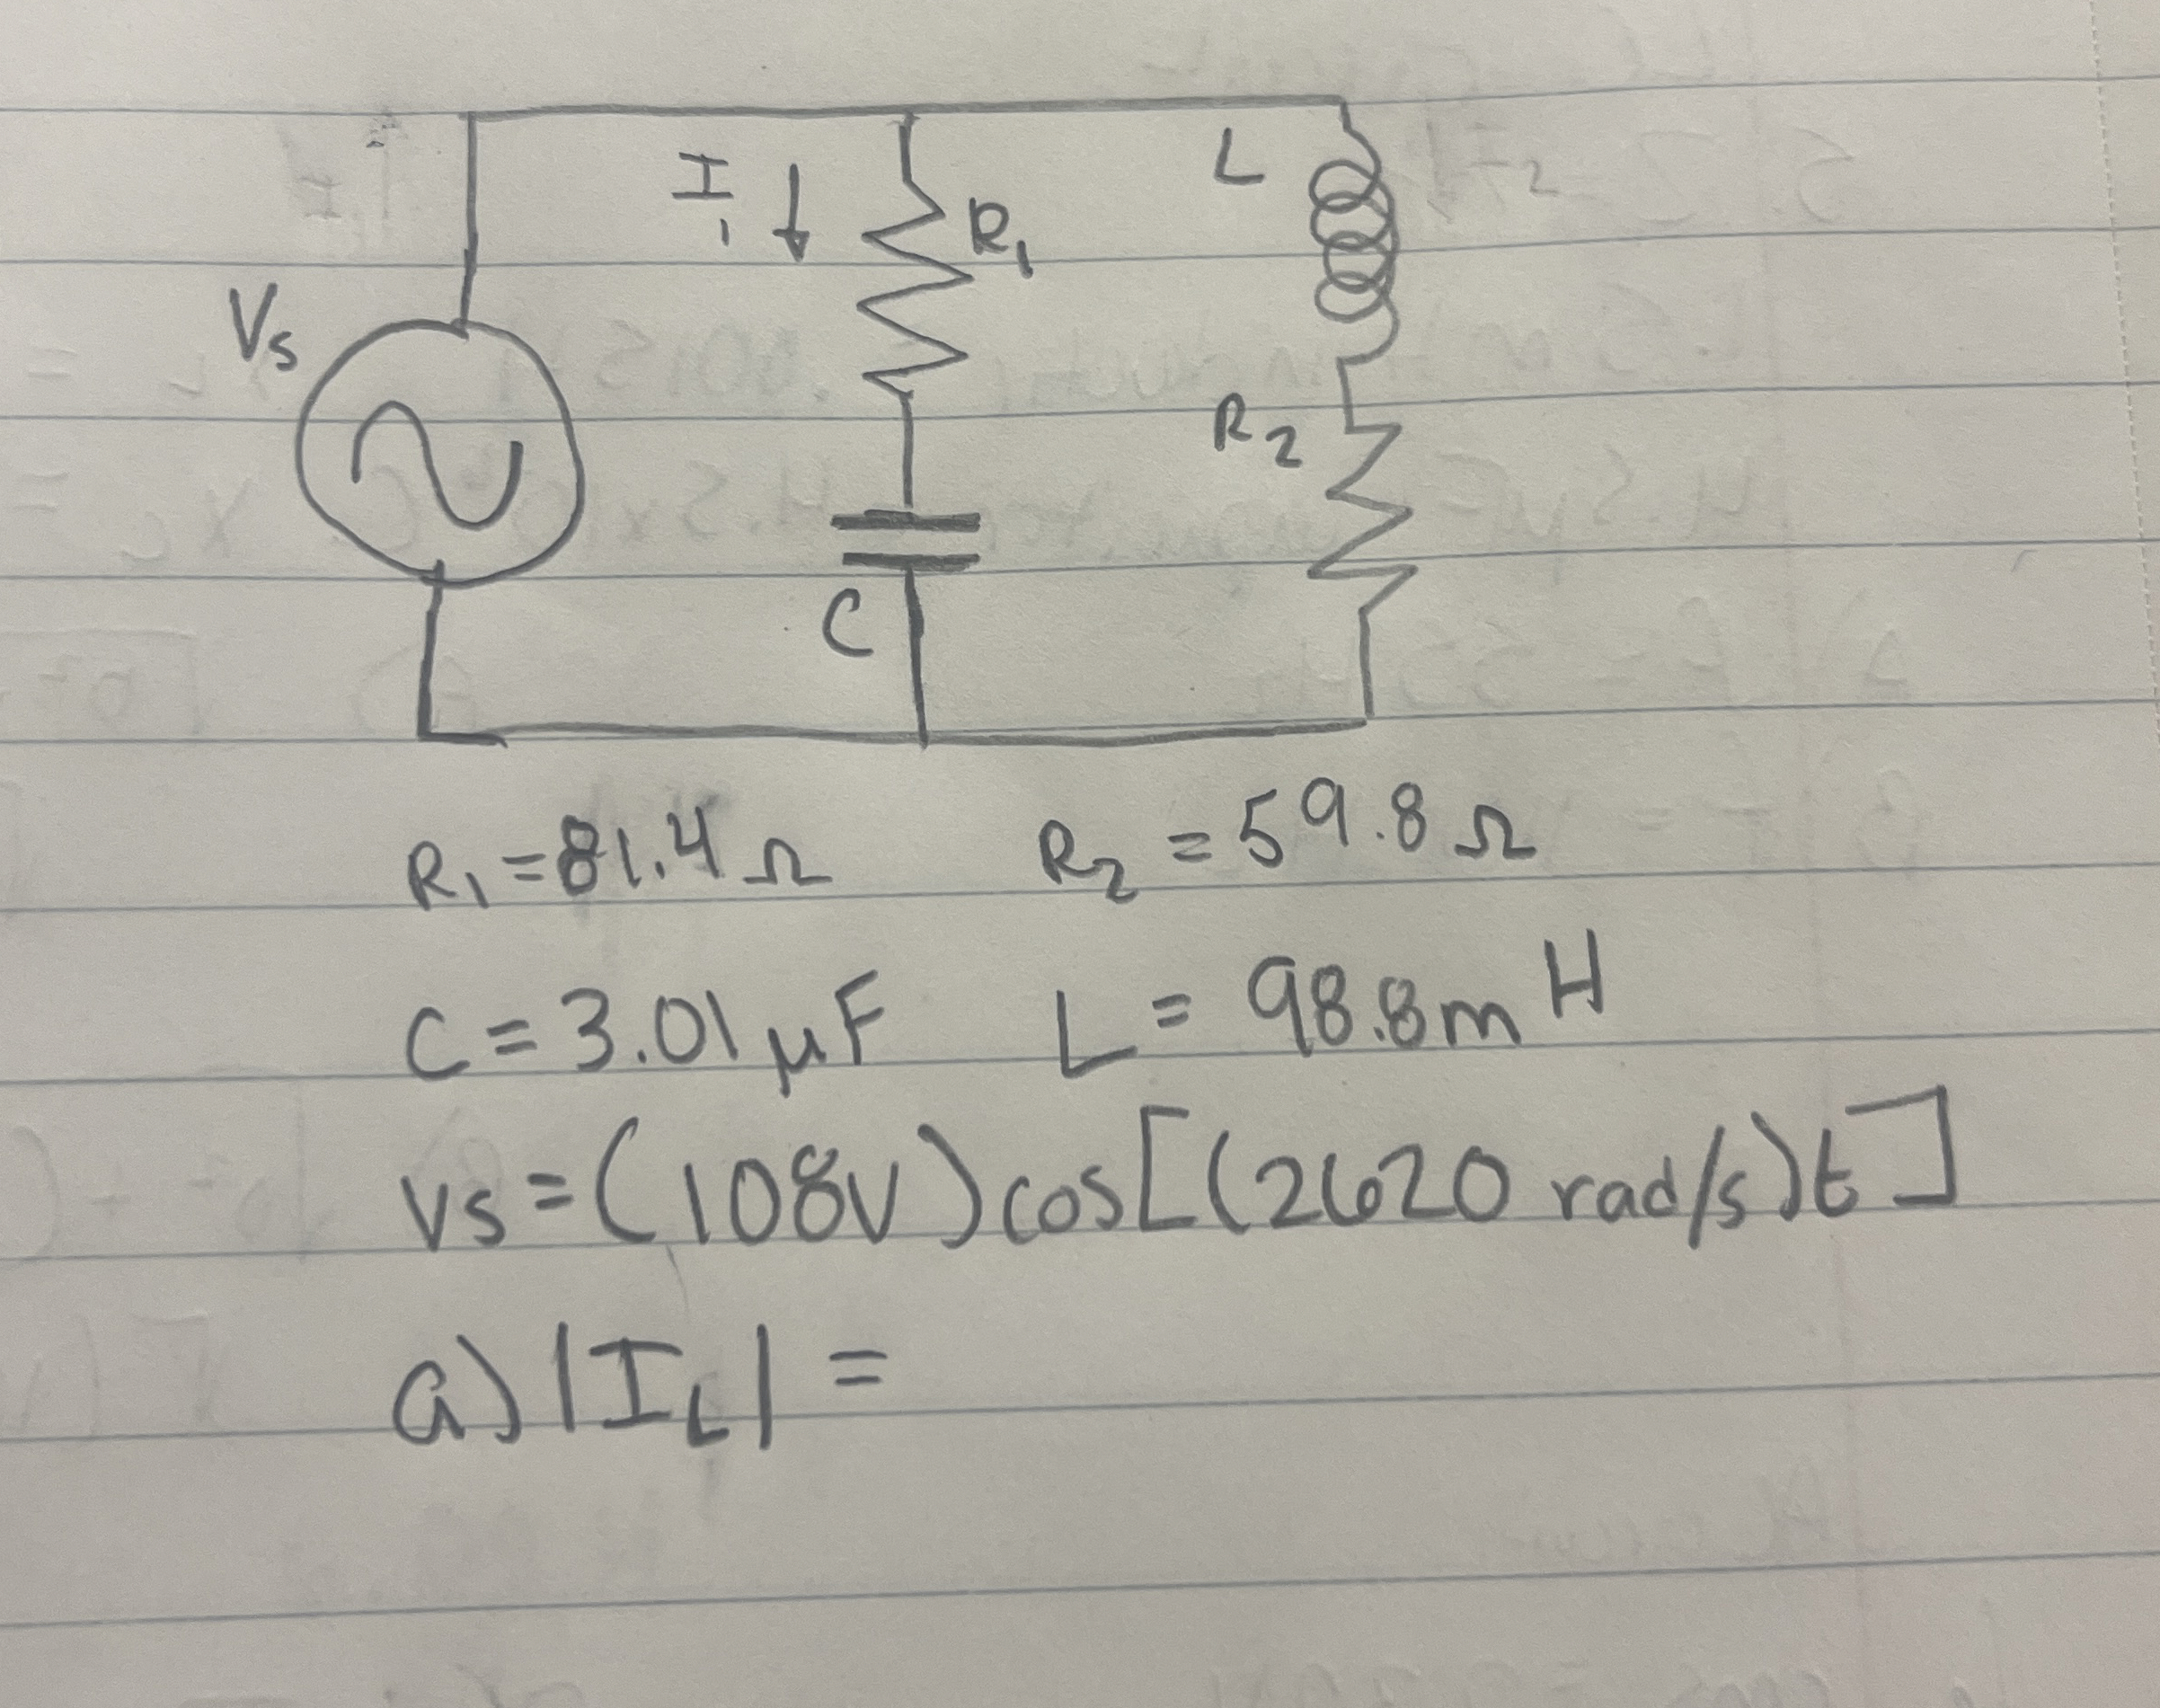 L
I₁ ↓ R₁
Vs
R₂
C
R₁ = 81.4 Ω R₂ = 59.8 Ω
C = 3.01 μF L = 98.8 mH
Vs = (108V) cos[(2620 rad/s)t]
a) |I_L| =